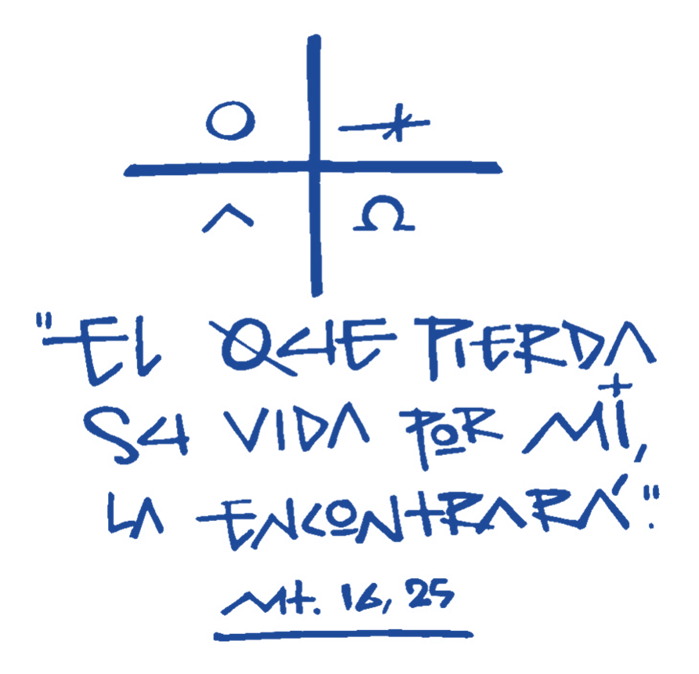 O ⚹
Λ Ω
"EL QUE PIERDA
SU VIDA POR MÍ,
LA ENCONTRARÁ".
Mt. 16, 25